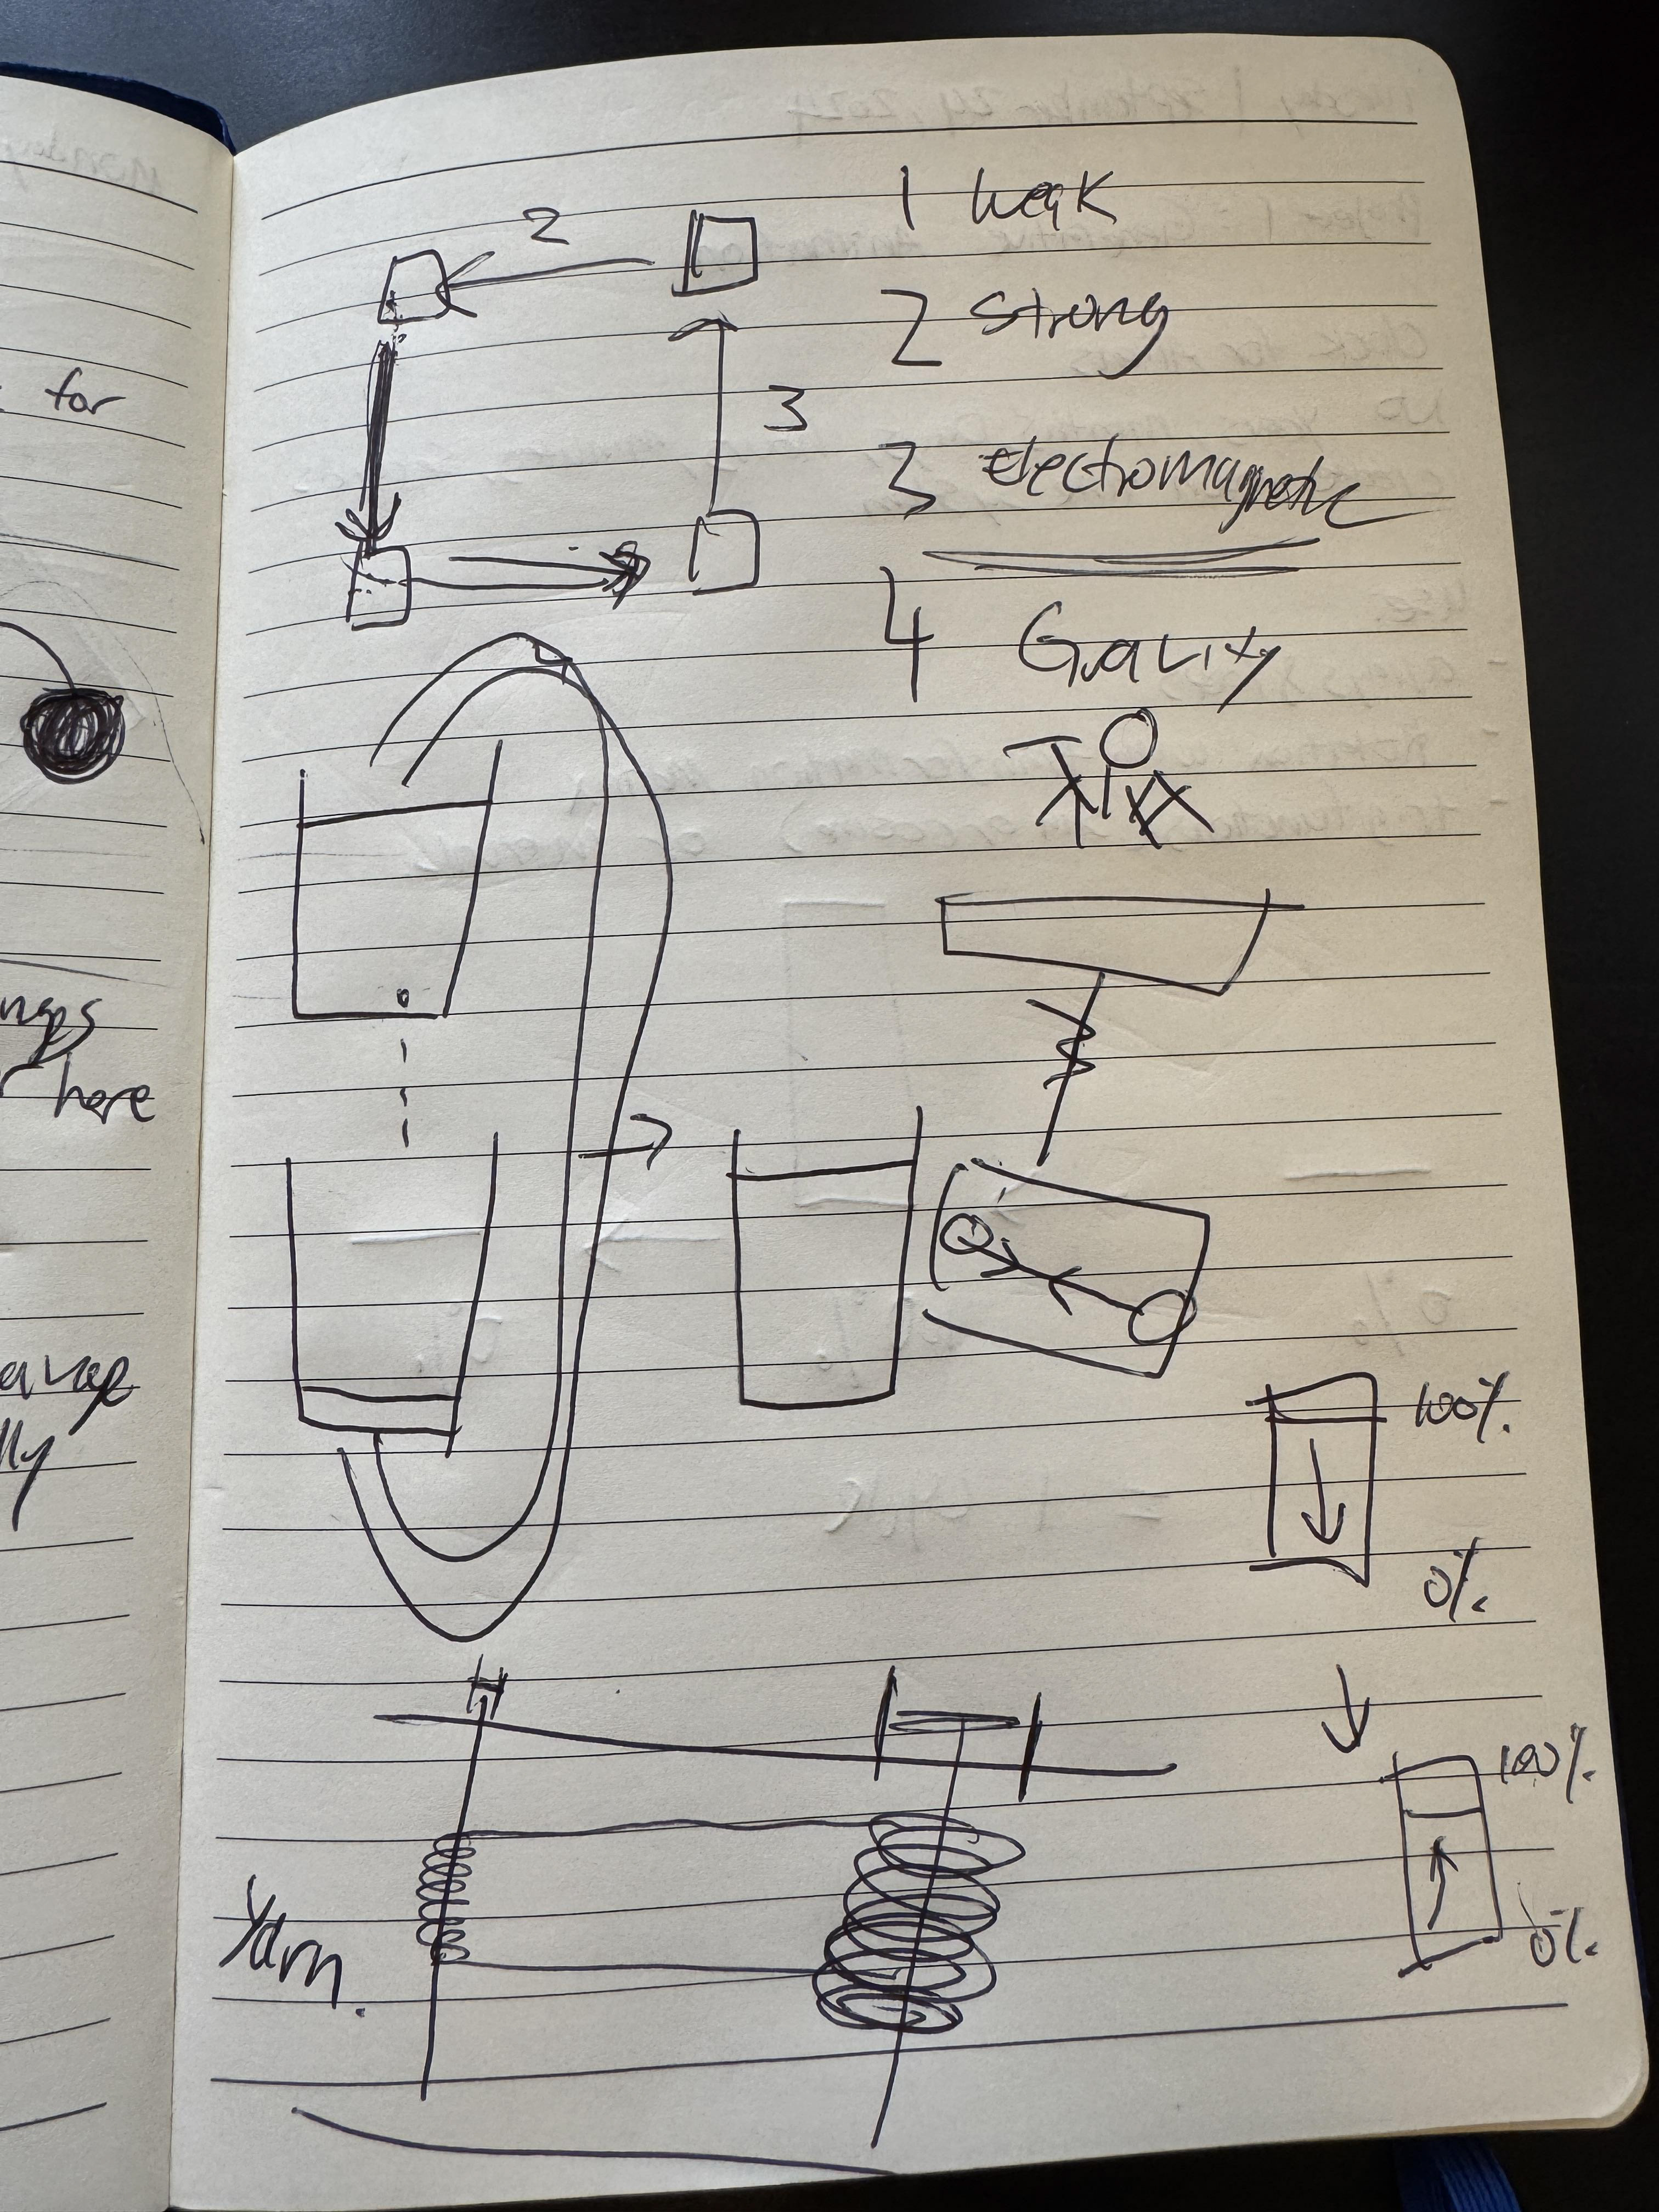 for
ngs
here
lly
2
3
1 weak
2 strong
3 electromagnetic
4 Gravity
100%.
0%.
100%.
0%.
Yarn.